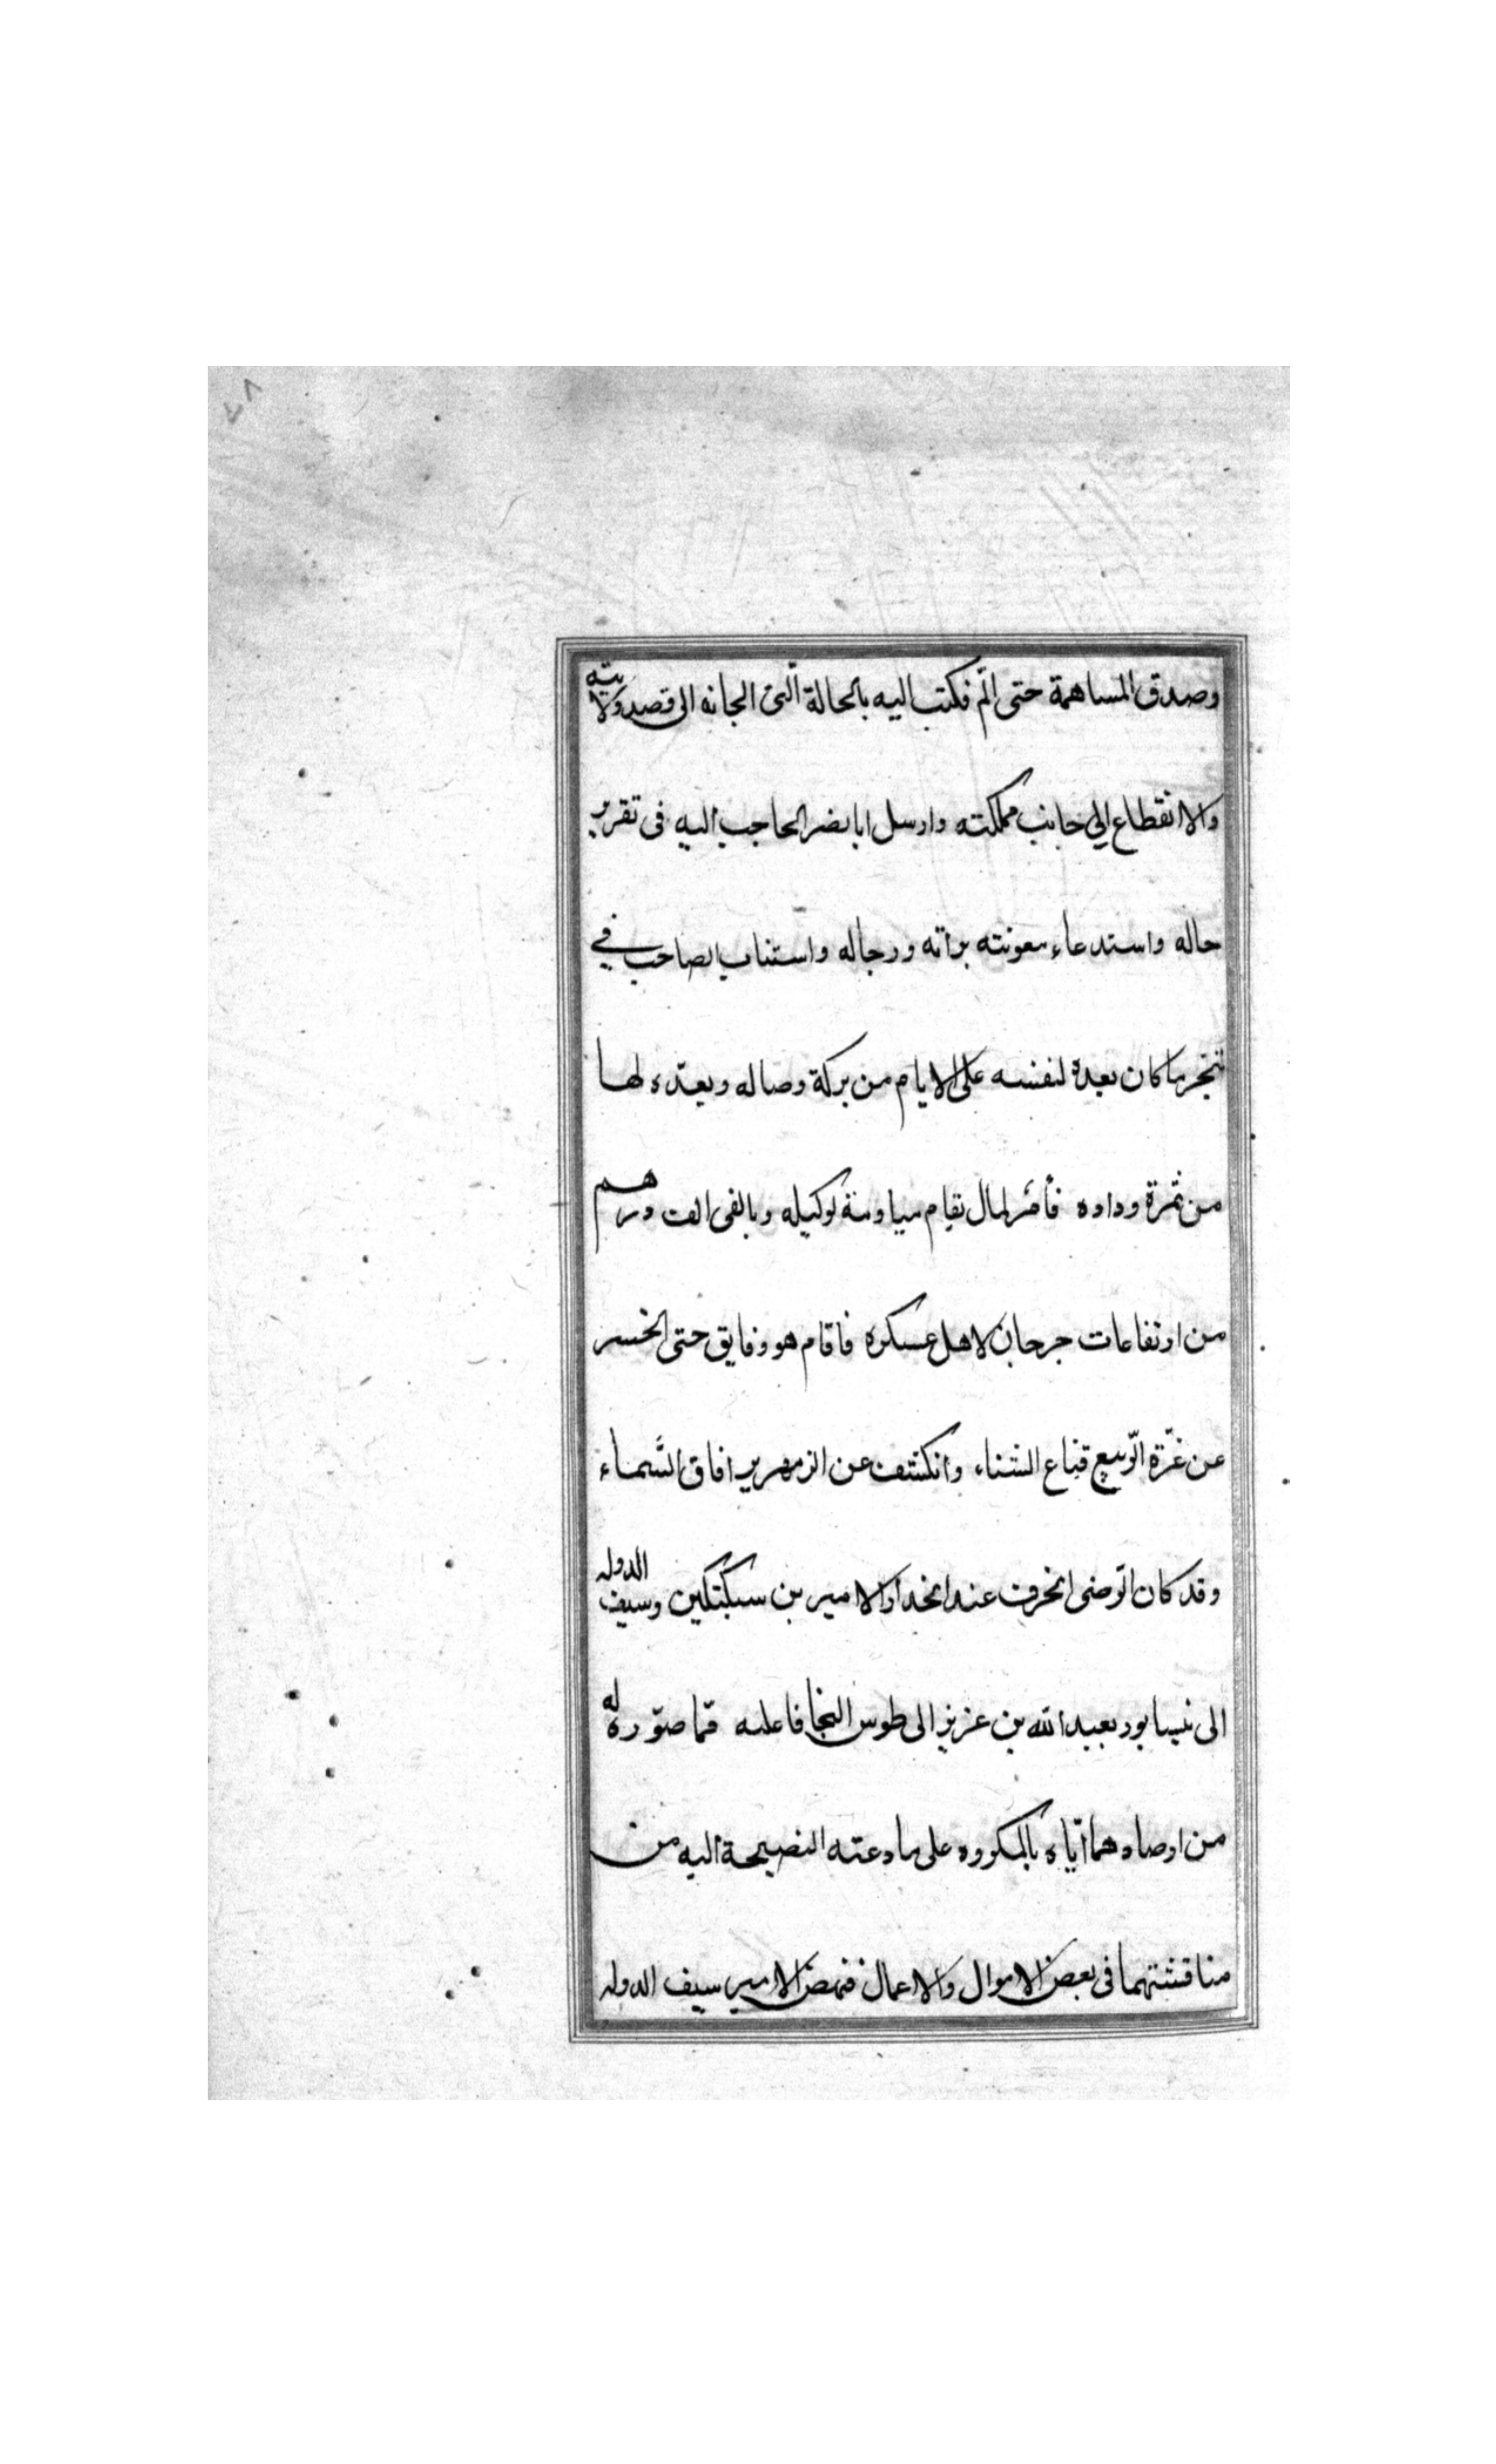 ٧٨
وصدق المساهمة حتى الم فكتب اليه بالحالة التى الجاته الى قصد ولايته
والانقطاع الى جانب مملكته وارسل ابا نصر الحاجب اليه فى تقرير
حاله واستدعاء معونته براته ورجاله واستناب الصاحب في
تنجز ما كان يعده لنفسه على الايام من بركة وصاله ويعدّه لها
من ثمرة وداده فأمر لمال تقام مياومة لوكيله وبالفى الف درهم
من ارتفاعات جرجان لاهل عسكره فاقام هو وفايق حتى انحسر
عن غرّة الرّبيع قناع الشتاء وانكشف عن الزمهرير افاق السَّماء
وقد كان الرّضى انحرف عند انحدار الامير بن سبكتكين وسيف الدوله
الى نيسابور بعبد الله بن عزيز الى طوس النجا فاعليه ممّا صوّره له
من ارصادهما ايّاه بالمكروه على ما دعته النصيحة اليه من
مناقشتهما فى بعض الاموال والاعمال فنهض الامير سيف الدوله